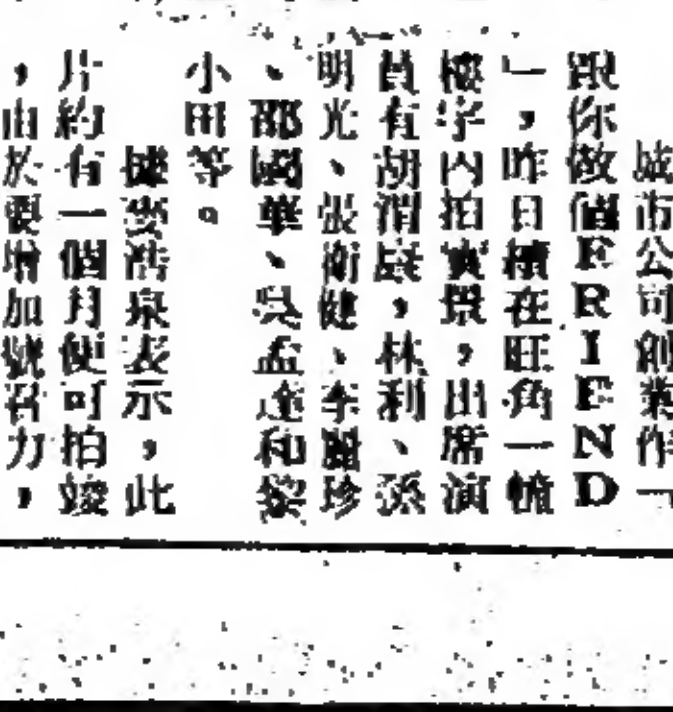 城市公司創業作「
跟你做個FRIEND
」，昨日續在旺角一幢
樓宇內拍實景，出席演
員有胡渭康，林利、孫
明光、張衛健、李麗珍
、邵國華、吳孟達和黎
小田等。
據麥浩泉表示，此
片約有一個月便可拍竣
，由於要增加號召力，